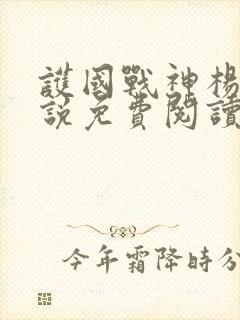 護國戰神楊
說免費閱讀
今年霜降時分